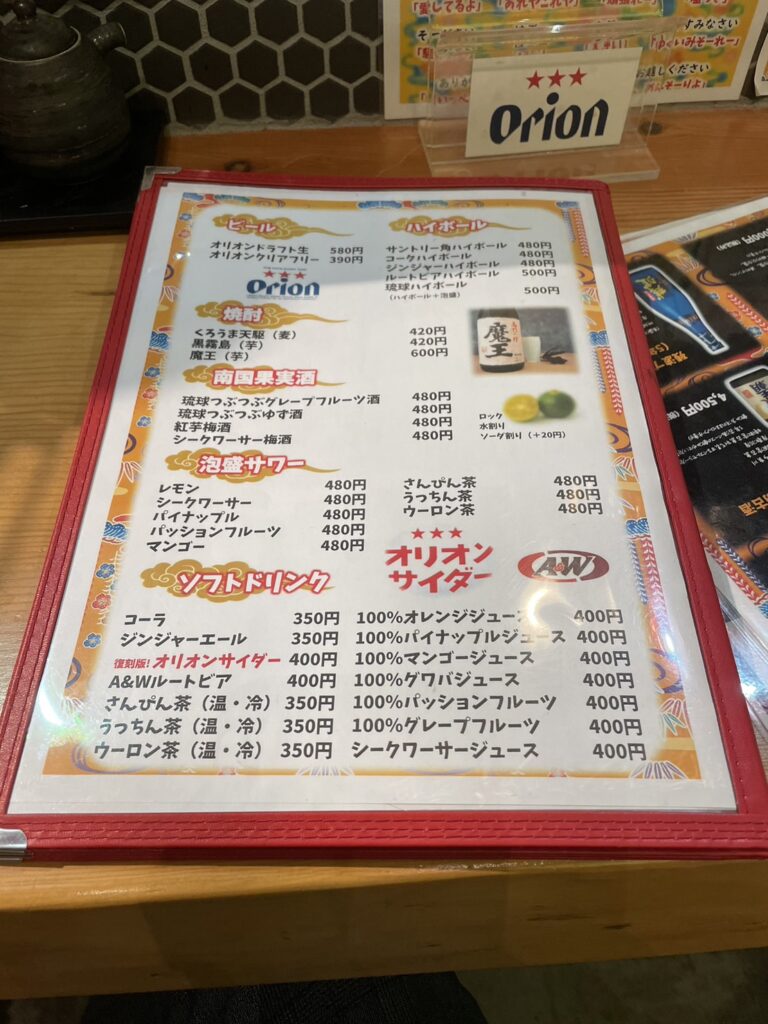 「愛してるよ」
★★★
orion
ビール
オリオンドラフト生 580円
オリオンクリアフリー 390円
orion
ハイボール
サントリー角ハイボール 480円
コークハイボール 480円
ジンジャーハイボール 480円
ルートビアハイボール 500円
琉球ハイボール 500円
（ハイボール＋泡盛）
焼酎
くろうま天駆（麦） 420円
黒霧島（芋） 420円
魔王（芋） 600円
魔王
南国果実酒
琉球つぶつぶグレープフルーツ酒 480円
琉球つぶつぶゆず酒 480円
紅芋梅酒 480円
シークワーサー梅酒 480円
ロック
水割り
ソーダ割り（＋20円）
泡盛サワー
レモン 480円
シークワーサー 480円
パイナップル 480円
パッションフルーツ 480円
マンゴー 480円
さんぴん茶 480円
うっちん茶 480円
ウーロン茶 480円
★★★
オリオン
サイダー
A&W
ソフトドリンク
コーラ 350円
ジンジャーエール 350円
復刻版！オリオンサイダー 400円
A&Wルートビア 400円
さんぴん茶（温・冷） 350円
うっちん茶（温・冷） 350円
ウーロン茶（温・冷） 350円
100%オレンジジュース 400円
100%パイナップルジュース 400円
100%マンゴージュース 400円
100%グワバジュース 400円
100%パッションフルーツ 400円
100%グレープフルーツ 400円
シークワーサージュース 400円
4,500円